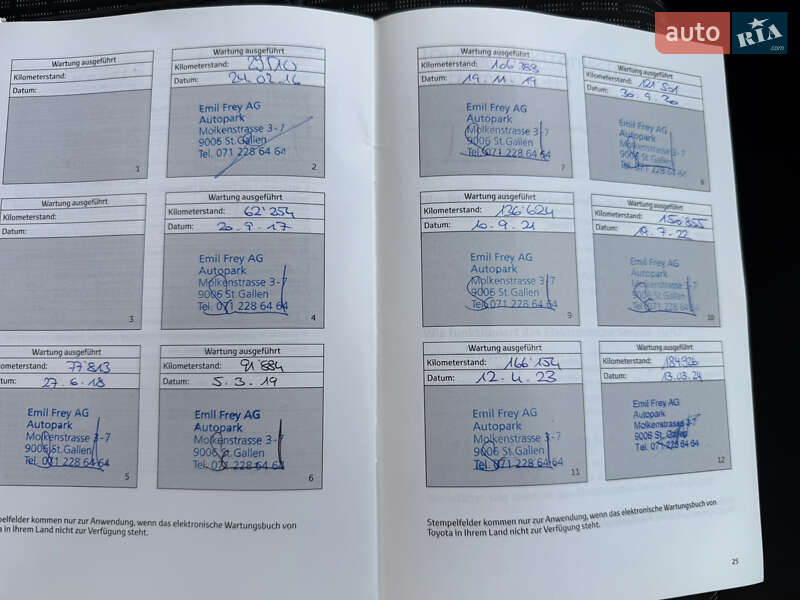 auto RIA.com
Wartung ausgeführt
Kilometerstand:
Datum:
1
Wartung ausgeführt
Kilometerstand: 29510
Datum: 24.02.16
Emil Frey AG
Autopark
Molkenstrasse 3-7
9006 St.Gallen
Tel. 071 228 64 64
2
Wartung ausgeführt
Kilometerstand:
Datum:
3
Wartung ausgeführt
Kilometerstand: 62'254
Datum: 20.9.17
Emil Frey AG
Autopark
Molkenstrasse 3-7
9006 St.Gallen
Tel. 071 228 64 64
4
Wartung ausgeführt
ometerstand: 77'813
tum: 27.6.18
Emil Frey AG
Autopark
Molkenstrasse 3-7
9006 St.Gallen
Tel. 071 228 64 64
5
Wartung ausgeführt
Kilometerstand: 91'884
Datum: 5.3.19
Emil Frey AG
Autopark
Molkenstrasse 3-7
9006 St.Gallen
Tel. 071 228 64 64
6
mpelfelder kommen nur zur Anwendung, wenn das elektronische Wartungsbuch von
ta in Ihrem Land nicht zur Verfügung steht.
Wartung ausgeführt
Kilometerstand:
Datum: 19.11.19
Emil Frey AG
Autopark
Molkenstrasse 3-7
9006 St.Gallen
Tel. 071 228 64 64
7
Wartung ausgeführt
Kilometerstand: 121'501
Datum: 30.9.20
Emil Frey AG
Autopark
Molkenstrasse 3-7
9006 St.Gallen
Tel. 071 228 64 64
Wartung ausgeführt
Kilometerstand: 136'624
Datum: 10.9.21
Emil Frey AG
Autopark
Molkenstrasse 3-7
9006 St.Gallen
Tel. 071 228 64 64
9
Wartung ausgeführt
Kilometerstand: 150'855
Datum: 19.7.22
Emil Frey AG
Autopark
Molkenstrasse 3-7
9006 St.Gallen
Tel. 071 228 64 64
10
Wartung ausgeführt
Kilometerstand: 166'154
Datum: 12.4.23
Emil Frey AG
Autopark
Molkenstrasse 3-7
9006 St.Gallen
Tel. 071 228 64 64
11
Wartung ausgeführt
Kilometerstand: 184'926
Datum: 13.03.24
Emil Frey AG
Autopark
Molkenstrasse 3-7
9006 St. Gallen
Tel. 071 228 64 64
12
Stempelfelder kommen nur zur Anwendung, wenn das elektronische Wartungsbuch von
Toyota in Ihrem Land nicht zur Verfügung steht.
25